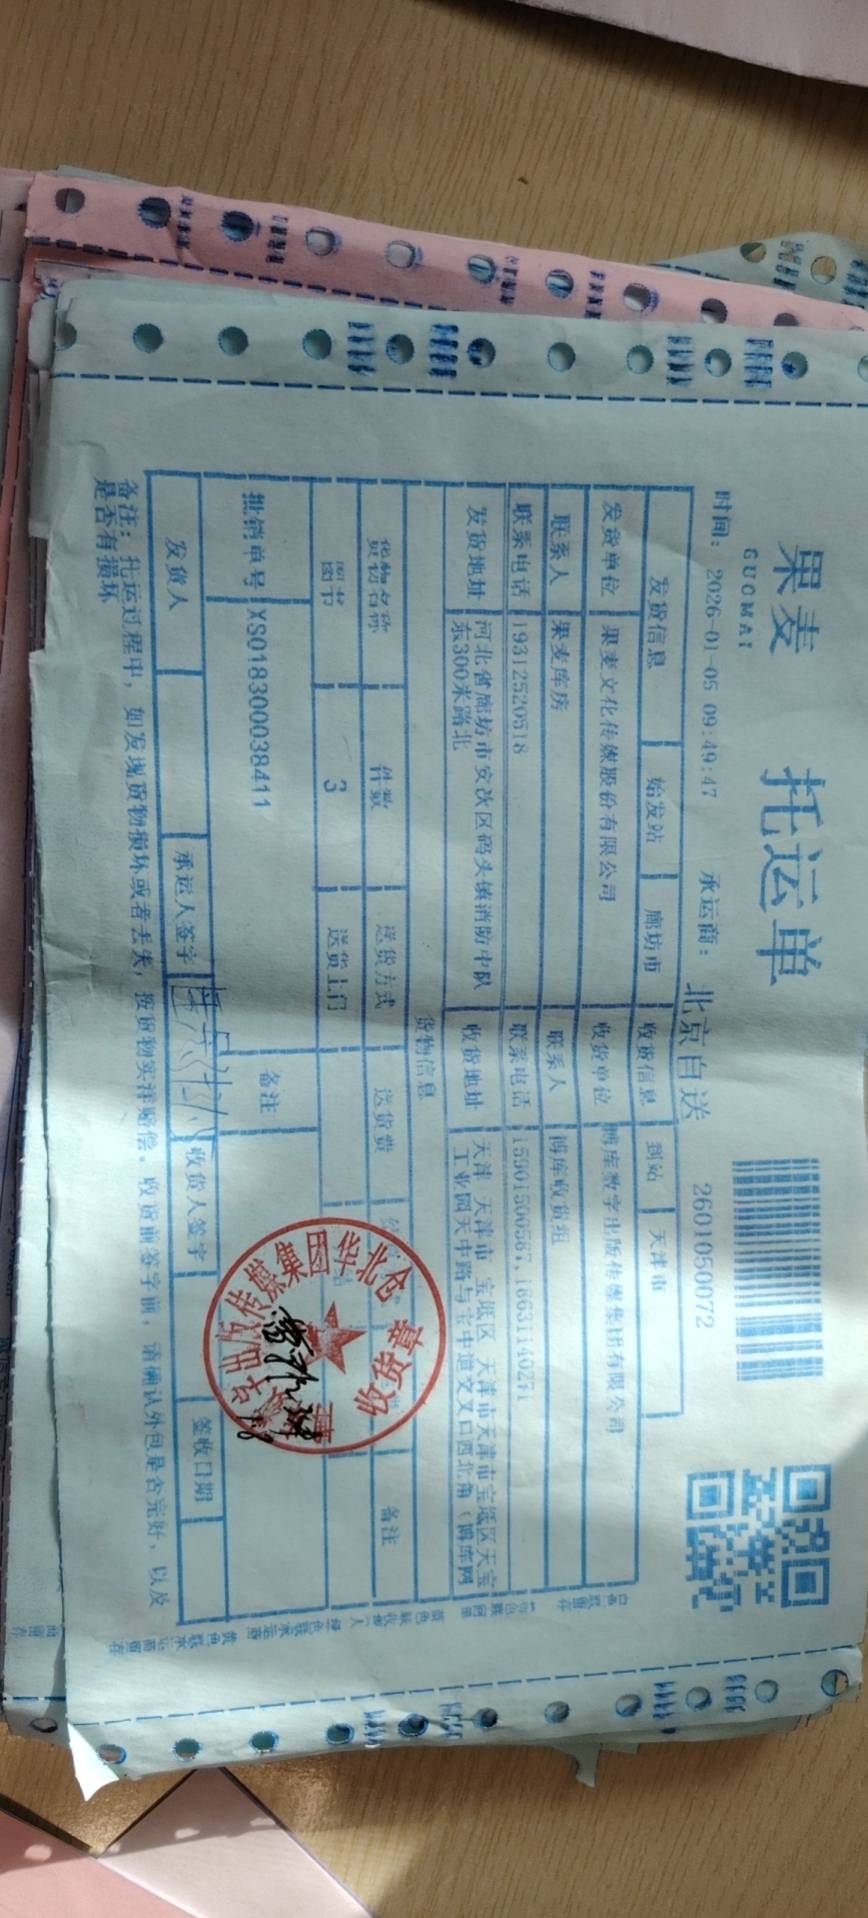 果麦
GUOMAI
托运单
时间: 2026-01-05 09:49:47
承运商: 北京自送
2601050072
发货信息 始发站 廊坊市 收货信息 到站 天津市
发货单位 果麦文化传媒股份有限公司 收货单位 博库数字出版传媒集团有限公司
联系人 果麦库房 联系人 博库收货组
联系电话 19312520518 联系电话 15901500587, 18631140271
发货地址 河北省廊坊市安次区码头镇消防中队
东300米路北
收货地址 天津 天津市 宝坻区 天津市天津市宝坻区天宝
工业园天中路与宝中道交叉口西北角(博库网
货物信息
货物名称 件数 送货方式 送货费 备注
图书 3 送货上门
批销单号 XS018300038411 备注
发货人 承运人签字 收货人签字 签收日期
备注: 托运过程中, 如发现货物损坏或者丢失, 按货物实洋赔偿。收货前签字前, 请确认外包是否完好, 以及
是否有损坏
出版传媒集团华北仓
收货章